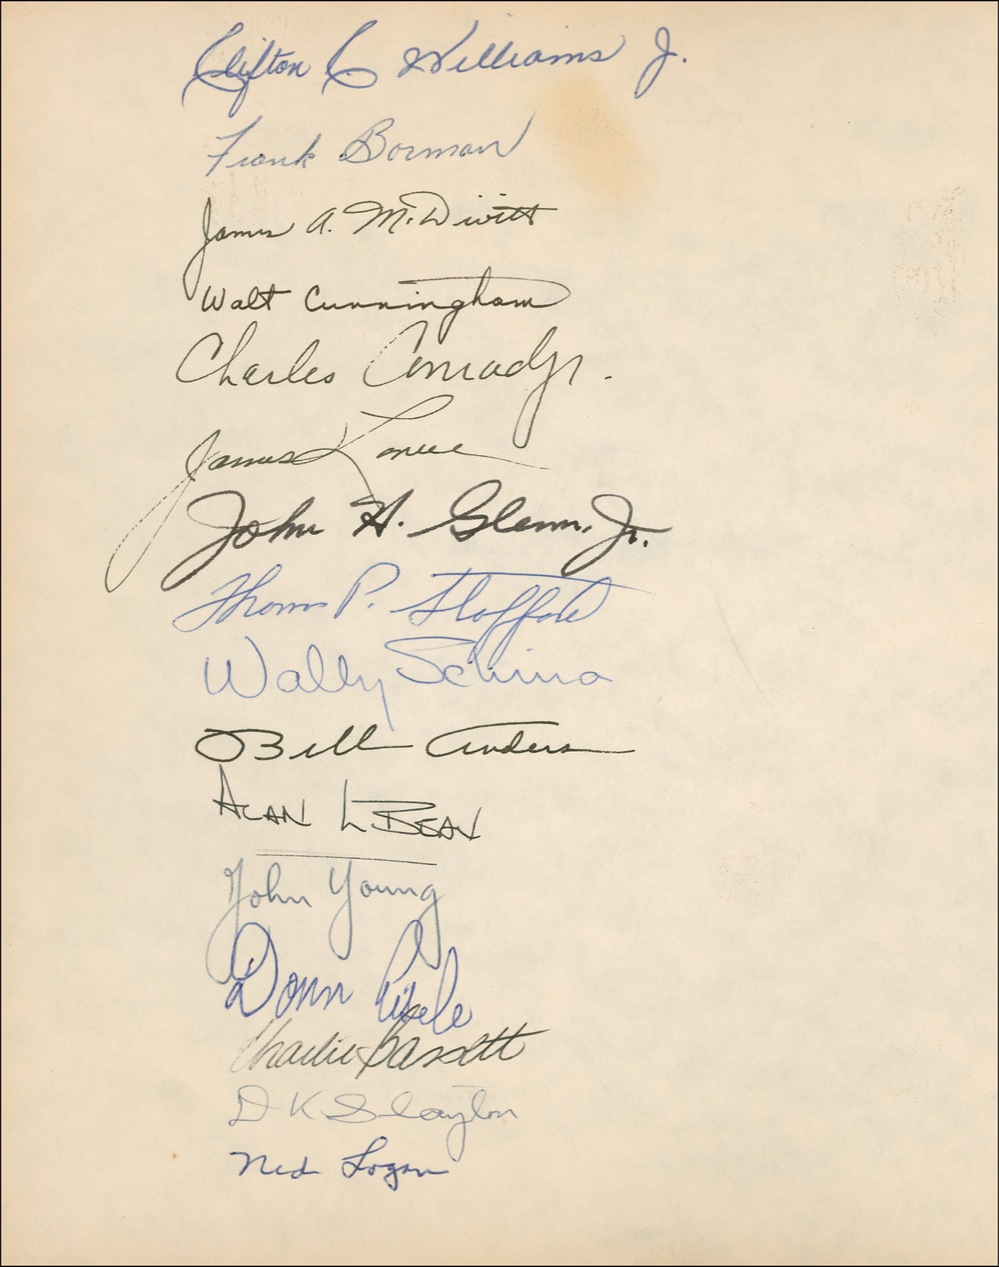 Clifton C Williams Jr.
Frank Borman
James A. McDivitt
Walt Cunningham
Charles Conrad Jr.
James Lovell
John H. Glenn, Jr.
Thomas P. Stafford
Wally Schirra
Bill Anders
Alan L Bean
John Young
Donn Eisele
Charlie Bassett
D K Slayton
Ned Logan